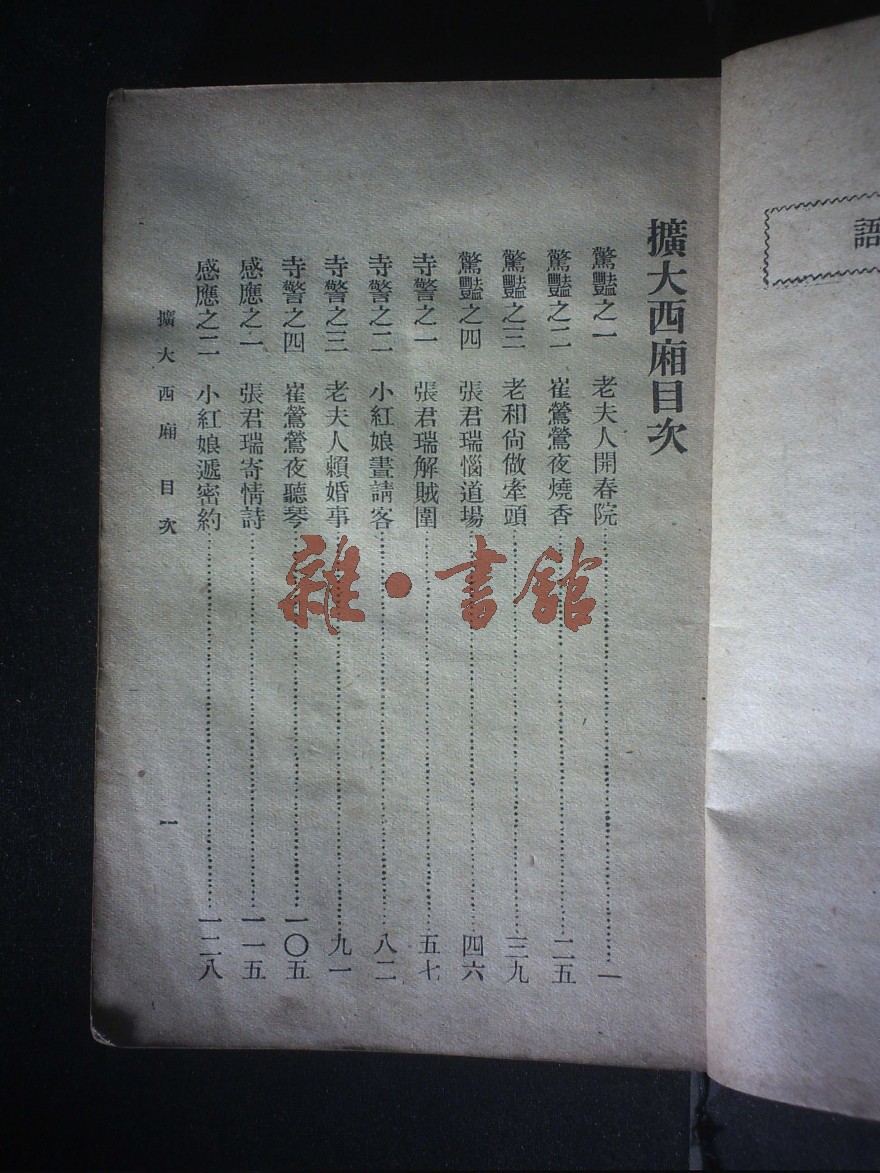 語
擴大西廂目次
驚豔之一 老夫人開春院………一
驚豔之二 崔鶯鶯夜燒香………二五
驚豔之三 老和尙做牽頭………三九
驚豔之四 張君瑞惱道場………四六
寺警之一 張君瑞解賊圍………五七
寺警之二 小紅娘晝請客………八二
寺警之三 老夫人賴婚事………九一
寺警之四 崔鶯鶯夜聽琴………一〇五
感應之一 張君瑞寄情詩………一一五
感應之二 小紅娘遞密約………一二八
擴大西廂 目次 一
雜·書館